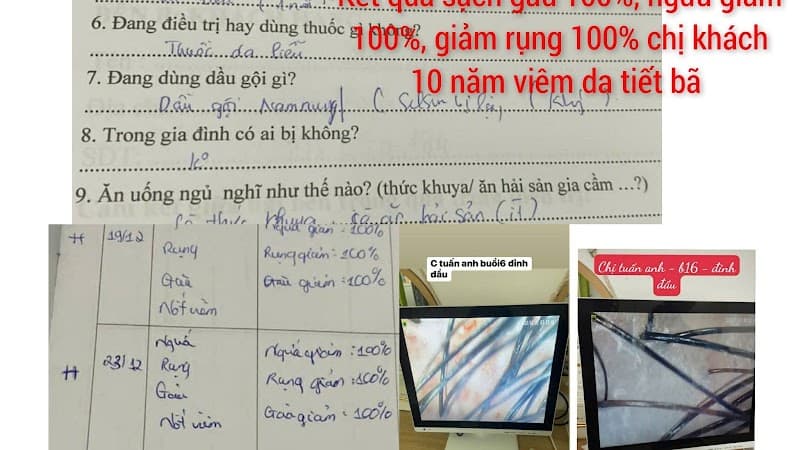 Kết quả sạch gàu 100%, ngứa giảm
100%, giảm rụng 100% chị khách
10 năm viêm da tiết bã
6. Đang điều trị hay dùng thuốc gì không?
Thuốc da liễu
7. Đang dùng dầu gội gì?
Dầu gội
8. Trong gia đình có ai bị không?
k°
9. Ăn uống ngủ nghĩ như thế nào? (thức khuya/ ăn hải sản gia cầm ...?)
Có thức khuya ăn hải sản (ít)
19/12
Ngứa giản: 100%
Rụng
Rụng giản: 100%
Gàu
Gàu giản: 100%
Nốt viêm
23/12
Ngứa
Ngứa giản: 100%
Rụng
Rụng giản: 100%
Gàu
Gàu giản: 100%
Nốt viêm
C tuấn anh buổi6 đỉnh
đầu
Chị tuấn anh - b16 - đỉnh
đầu